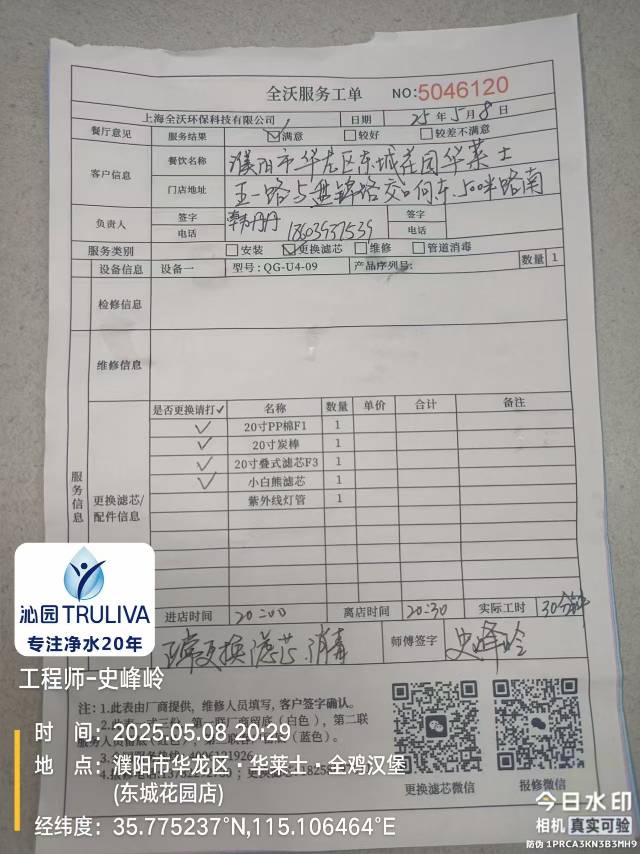 全沃服务工单 NO:5046120
上海全沃环保科技有限公司 日期 25年5月8日
餐厅意见 服务结果 满意 较好 较差不满意
客户信息 餐饮名称 濮阳市华龙区东城花园华莱士
门店地址 五一路与盘锦路交口向东500米路南
负责人 签字 签字
电话 13603937539 电话
服务类别 安装 更换滤芯 维修 管道消毒
设备信息 设备一 型号:QG-U4-09 产品序列号: 数量 1
检修信息
维修信息
服务信息
更换滤芯/配件信息
是否更换请打✓ 名称 数量 单价 合计 备注
✓ 20寸PP棉F1 1
✓ 20寸炭棒 1
✓ 20寸叠式滤芯F3 1
✓ 小白熊滤芯 1
紫外线灯管 1
进店时间 20:00 离店时间 20:30 实际工时 30分钟
正常更换滤芯消毒 师傅签字 史峰岭
注:1.此表由厂商提供,维修人员填写,客户签字确认。
2.此表一式三份,第一联厂商留底(白色),第二联
更换滤芯微信 报修微信
沁园TRULIVA
专注净水20年
工程师-史峰岭
时 间:2025.05.08 20:29
地 点:濮阳市华龙区·华莱士·全鸡汉堡
(东城花园店)
经纬度:35.775237°N,115.106464°E
今日水印
相机 真实可验
防伪 1PRCA3KN3B3MH9